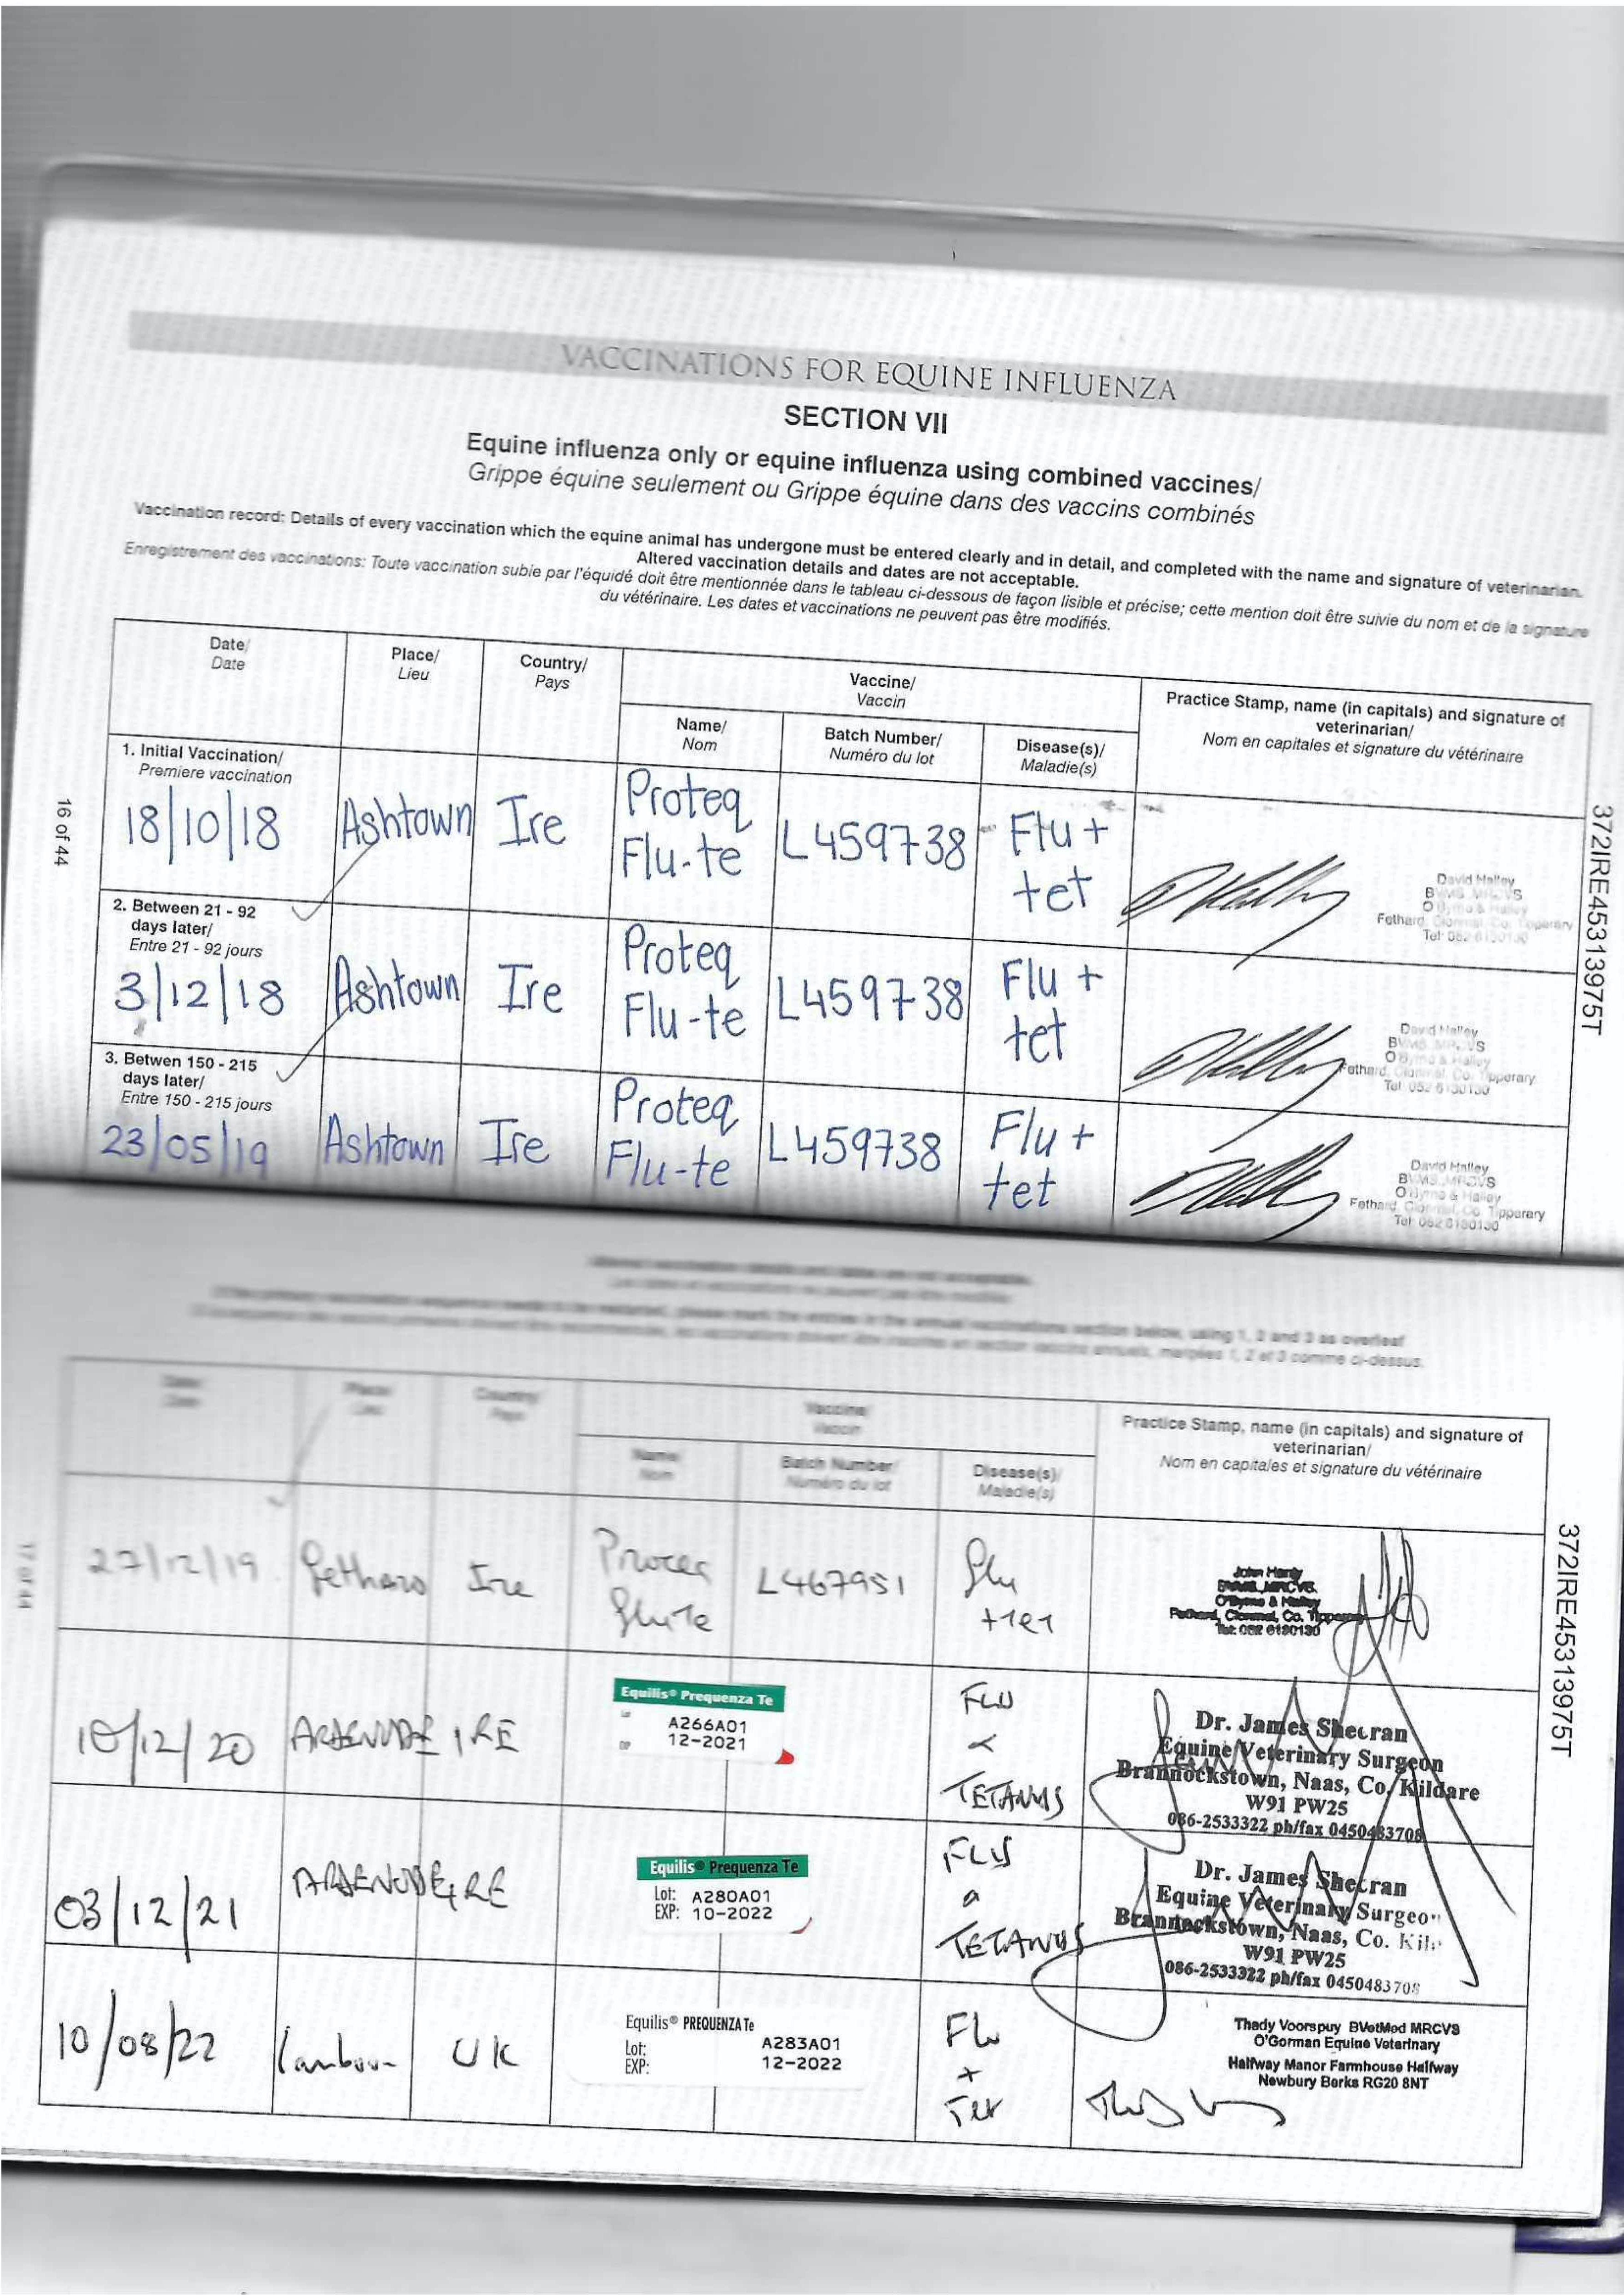 VACCINATIONS FOR EQUINE INFLUENZA
SECTION VII
Equine influenza only or equine influenza using combined vaccines/
Grippe équine seulement ou Grippe équine dans des vaccins combinés
Vaccination record: Details of every vaccination which the equine animal has undergone must be entered clearly and in detail, and completed with the name and signature of veterinarian.
Altered vaccination details and dates are not acceptable.
Enregistrement des vaccinations: Toute vaccination subie par l'équidé doit être mentionnée dans le tableau ci-dessous de façon lisible et précise; cette mention doit être suivie du nom et de la signature
du vétérinaire. Les dates et vaccinations ne peuvent pas être modifiés.
Date/
Date
Place/
Lieu
Country/
Pays
Vaccine/
Vaccin
Name/
Nom
Batch Number/
Numéro du lot
Disease(s)/
Maladie(s)
Practice Stamp, name (in capitals) and signature of
veterinarian/
Nom en capitales et signature du vétérinaire
1. Initial Vaccination/
Premiere vaccination
18/10/18 Ashtown Ire
Proteq
Flu-te
L459738
Flu +
tet
David Halley
BVMS MRCVS
O'Byrne & Halley
Fethard, Clonmel, Co. Tipperary
Tel: 052 6130130
2. Between 21 - 92
days later/
Entre 21 - 92 jours
3/12/18 Ashtown Ire
Proteq
Flu-te
L459738
Flu +
tet
David Halley
BVMS MRCVS
O'Byrne & Halley
Fethard, Clonmel, Co. Tipperary
Tel: 052 6130130
3. Betwen 150 - 215
days later/
Entre 150 - 215 jours
23/05/19 Ashtown Ire
Proteq
Flu-te
L459738
Flu +
tet
David Halley
BVMS MRCVS
O'Byrne & Halley
Fethard, Clonmel, Co. Tipperary
Tel: 052 6130130
16 of 44
372IRE45313975T
Altered vaccination details and dates are not acceptable.
Les dates et vaccinations ne peuvent pas être modifiés.
If the primary vaccination sequence needs to be restarted, please mark the entries in the annual vaccinations section below, using 1, 2 and 3 as overleaf
marqées 1, 2 et 3 comme ci-dessus.
Date/
Date
Place/
Lieu
Country/
Pays
Vaccine/
Vaccin
Name/
Nom
Batch Number/
Numéro du lot
Disease(s)/
Maladie(s)
Practice Stamp, name (in capitals) and signature of
veterinarian/
Nom en capitales et signature du vétérinaire
27/12/19 Ire
L467951
Flu
+ tet
John Hardy
BVMS MRCVS
O'Byrne & Halley
Fethard, Clonmel, Co. Tipperary
Tel: 052 6130130
/12/20 IRE
Equilis® Prequenza Te
A266A01
12-2021
FLU
TETANUS
Dr. James Sheeran
Equine Veterinary Surgeon
Brannockstown, Naas, Co. Kildare
W91 PW25
086-2533322 ph/fax 0450483708
03/12/21
Equilis® Prequenza Te
Lot: A280A01
EXP: 10-2022
FLU
TETANUS
Dr. James Sheeran
Equine Veterinary Surgeon
Brannockstown, Naas, Co. Kil
W91 PW25
086-2533322 ph/fax 0450483708
10/08/22 Lambourn UK
Equilis® PREQUENZA Te
Lot: A283A01
EXP: 12-2022
Flu
+
Tet
Thady Voorspuy BVetMed MRCVS
O'Gorman Equine Veterinary
Halfway Manor Farmhouse Halfway
Newbury Berks RG20 8NT
17 of 44
372IRE45313975T